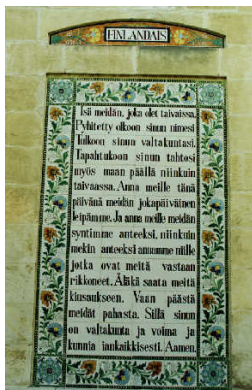 FINLANDAIS
Isä meidän, joka olet taivaissa,
Pyhitetty olkoon sinun nimesi
Tulkoon sinun valtakuntasi.
Tapahtukoon sinun tahtosi
myös maan päällä niinkuin
taivaassa. Anna meille tänä
päivänä meidän jokapäiväinen
leipämme. Ja anna meille meidän
syntimme anteeksi, niinkuin
mekin anteeksi annamme niille
jotka ovat meitä vastaan
rikkoneet. Äläkä saata meitä
kiusaukseen. Vaan päästä
meidät pahasta. Sillä sinun
on valtakunta ja voima ja
kunnia iankaikkisesti. Aamen.